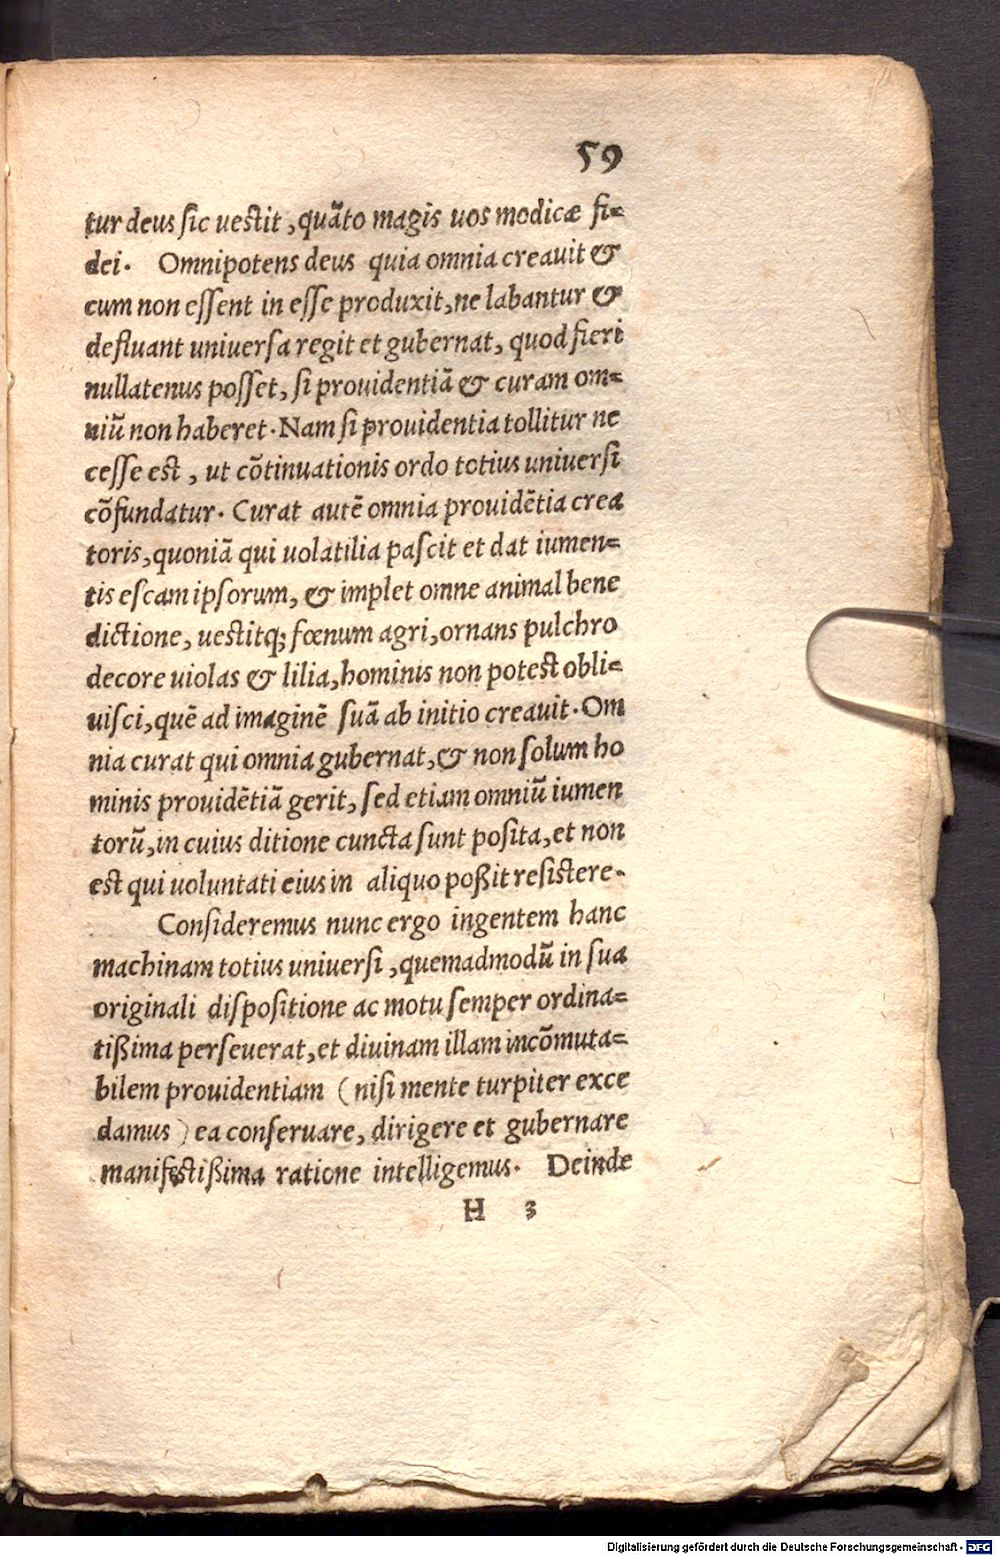 59
tur deus ſic ueſtit, quãto magis uos modicæ fi=
dei. Omnipotens deus quia omnia creauit &
cum non eſſent in eſſe produxit, ne labantur &
defluant uniuerſa regit et gubernat, quod fieri
nullatenus poſſet, ſi prouidentiã & curam om=
niũ non haberet. Nam ſi prouidentia tollitur ne
ceſſe eſt, ut cõtinuationis ordo totius uniuerſi
cõfundatur. Curat autẽ omnia prouidẽtia crea
toris, quoniã qui uolatilia paſcit et dat iumen=
tis eſcam ipſorum, & implet omne animal bene
dictione, ueſtitq; fœnum agri, ornans pulchro
decore uiolas & lilia, hominis non poteſt obli=
uiſci, quẽ ad imaginẽ ſuã ab initio creauit. Om
nia curat qui omnia gubernat, & non ſolum ho
minis prouidẽtiã gerit, ſed etiam omniũ iumen
torũ, in cuius ditione cuncta ſunt poſita, et non
eſt qui uoluntati eius in aliquo poßit reſiſtere.
Conſideremus nunc ergo ingentem hanc
machinam totius uniuerſi, quemadmodũ in ſua
originali diſpoſitione ac motu ſemper ordina=
tißima perſeuerat, et diuinam illam incõmuta=
bilem prouidentiam (niſi mente turpiter exce
damus) ea conſeruare, dirigere et gubernare
manifeſtißima ratione intelligemus. Deinde
H 3
Digitalisierung gefördert durch die Deutsche Forschungsgemeinschaft - DFG